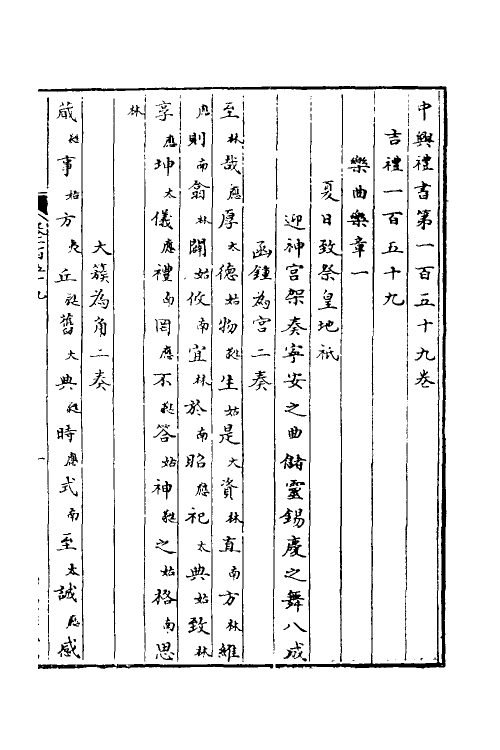 中興禮書第一百五十九卷
吉禮一百五十九
樂曲樂章一
夏日致祭皇地祇
迎神宮架奏寧安之曲儲靈錫慶之舞八成
函鍾為宮二奏
至林哉應厚太德姑物蕤生姑是大資林直南方林維
應則南翕林闢姑攸南宜林於南昭應祀太典姑致林
享應坤太儀應禮南罔應不蕤答姑神蕤之姑格南思
林
大簇為角二奏
蕆蕤事姑方夷丘蕤舊大典蕤時應式南至太誠應感